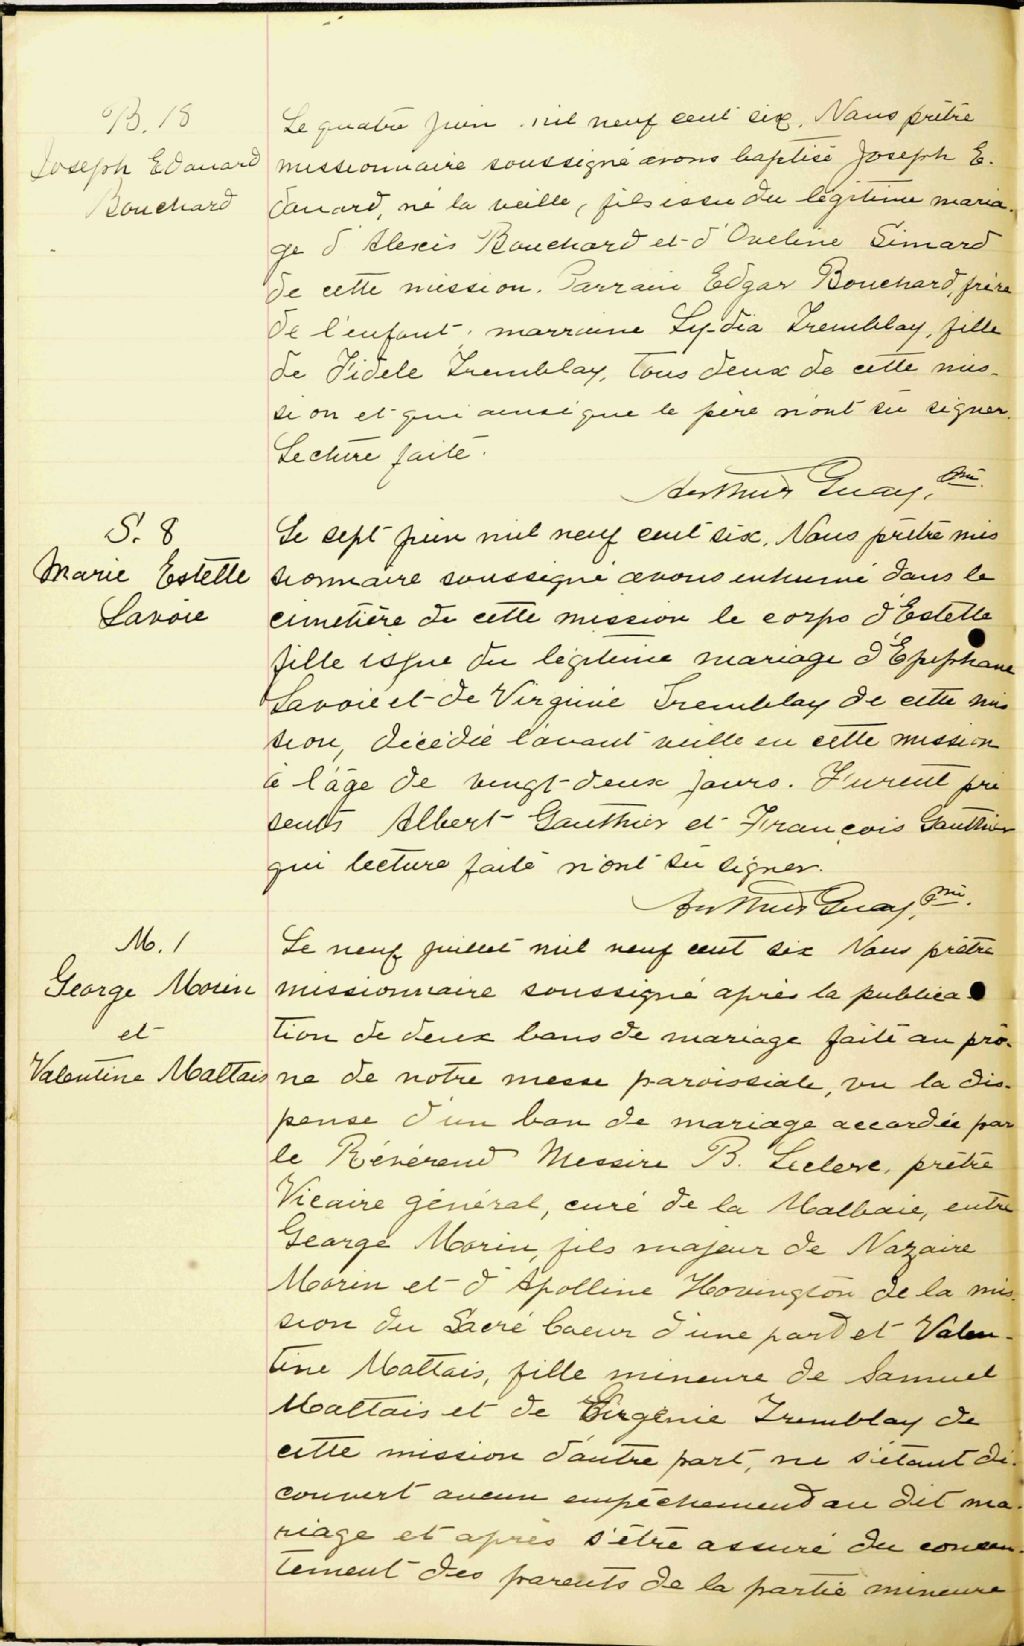 B. 18
Joseph Edouard
Bouchard
Le quatre juin mil neuf cent six, Nous prêtre
missionnaire soussigné avons baptisé Joseph E.
douard, né la veille, fils issu du légitime maria-
ge d'Alexis Bouchard et d'Oveline Simard
de cette mission. Parrain Edgar Bouchard, frère
de l'enfant, marraine Lydia Tremblay, fille
de Fidele Tremblay, tous deux de cette mis-
sion et qui ainsi que le père n'ont su signer.
Lecture faite.
Arthur Guay, ptre mis.
S. 8
Marie Estelle
Savoie
Le sept juin mil neuf cent six, Nous prêtre mis
sionnaire soussigné avons inhumé dans le
cimetière de cette mission le corps d'Estelle
fille issue du légitime mariage d'Épiphane
Savoie et de Virginie Tremblay de cette mis
sion, décédée l'avant veille en cette mission
à l'âge de vingt-deux jours. Furent pré
sents Albert Gauthier et François Gauthier
qui lecture faite n'ont su signer.
Arthur Guay, ptre mis.
M. 1
George Morin
et
Valentine Maltais
Le neuf juillet mil neuf cent six Nous prêtre
missionnaire soussigné après la publica-
tion de deux bans de mariage faite au prô-
ne de notre messe paroissiale, vu la dis-
pense d'un ban de mariage accordée par
le Révérend Messire B. Leclerc, prêtre
Vicaire général, curé de la Malbaie, entre
George Morin, fils majeur de Nazaire
Morin et d'Apolline Hovington de la mis-
sion du Sacré Coeur d'une part et Valen-
tine Maltais, fille mineure de Samuel
Maltais et de Virginie Tremblay de
cette mission d'autre part, ne s'étant dé-
couvert aucun empêchement au dit ma-
riage et après s'être assuré du consen-
tement des parents de la partie mineure